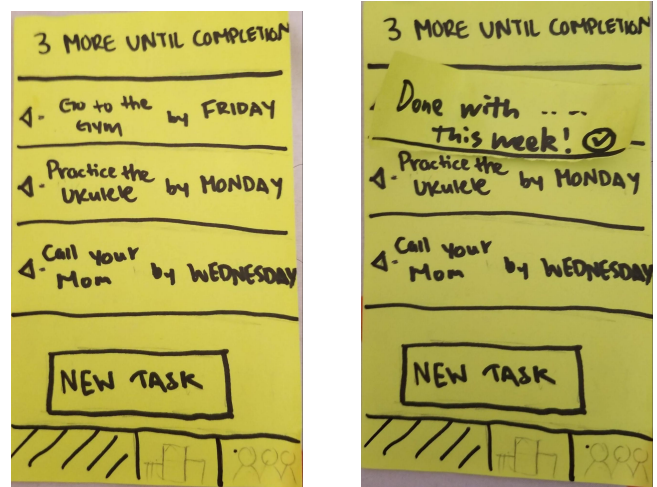 3 MORE UNTIL COMPLETION
Go to the
GYM by FRIDAY
Practice the
Ukulele by MONDAY
Call your
Mom by WEDNESDAY
NEW TASK
3 MORE UNTIL COMPLETION
Done with ....
this week!
Practice the
Ukulele by MONDAY
Call your
Mom by WEDNESDAY
NEW TASK